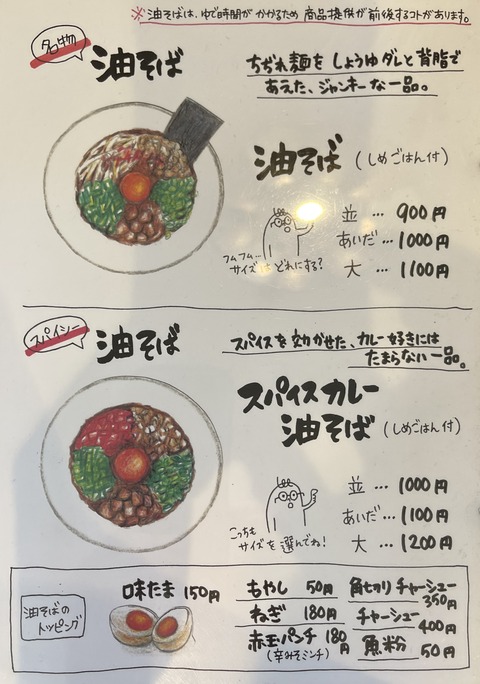 ※油そばは、ゆで時間がかかるため 商品提供が前後するコトがあります。
名物
油そば
ちぢれ麺をしょうゆダレと背脂で
あえた、ジャンキーな一品。
油そば (しめごはん付)
並 … 900円
あいだ … 1000円
大 … 1100円
フムフム…
サイズはどれにする?
スパイシー
油そば
スパイスを効かせた、カレー好きには
たまらない一品。
スパイスカレー
油そば (しめごはん付)
並 … 1000円
あいだ … 1100円
大 … 1200円
こっちも
サイズを選んでね!
油そばの
トッピング
味たま 150円
もやし 50円
ねぎ 180円
赤玉パンチ 180円
(辛みそミンチ)
角切りチャーシュー
350円
チャーシュー
400円
魚粉 50円